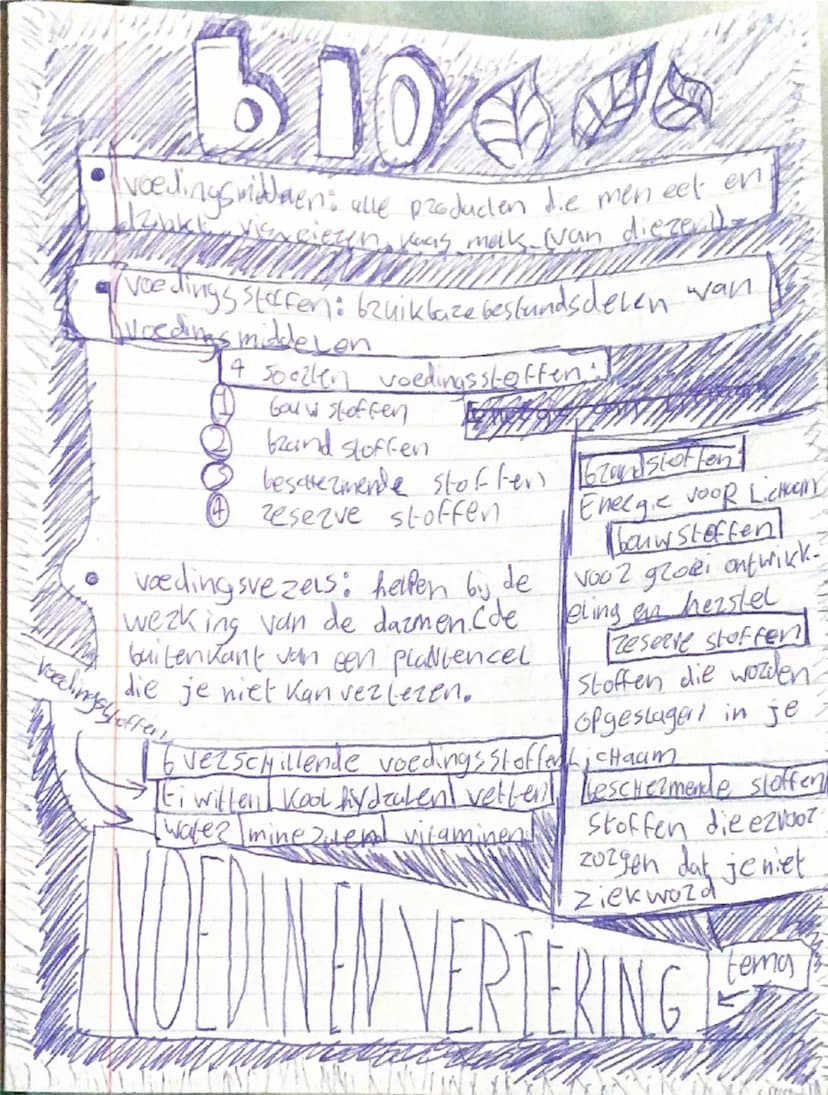 bio
voedingsmiddelen: alle producten die men eet en
drinkt. vis, eieren, kaas, melk (van dieren)
voedingsstoffen: bruikbare bestandsdelen van
voedingsmiddelen
4 soorten voedingsstoffen:
1 bouwstoffen
2 brandstoffen
3 beschermende stoffen
4 reserve stoffen
voedingsvezels: helpen bij de
werking van de darmen. (de
buitenkant van een plantencel
die je niet kan verteren.
voedingsstoffen
6 verschillende voedingsstoffen
Eiwitten koolhydraten vetten
water mineralen vitaminen
brandstoffen
Energie voor Lichaam
bouwstoffen
voor groei ontwikk-
eling en herstel
reserve stoffen
stoffen die worden
opgeslagen in je
Lichaam
beschermende stoffen
stoffen die ervoor
zorgen dat je niet
ziek word
VOEDIN EN VERTERING
tema